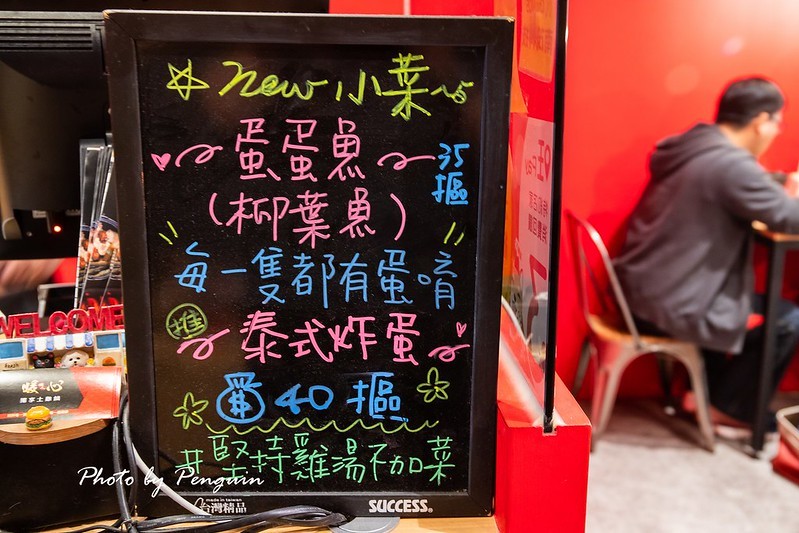 ☆ New 小菜~5
蛋蛋魚
35摳
(柳葉魚)
每一隻都有蛋唷
推
泰式炸蛋
$ 40 摳
#堅持雞湯不加菜
WELCOME
暖之心
Photo by Penguin
made in taiwan
台灣精品
SUCCESS®
Pay